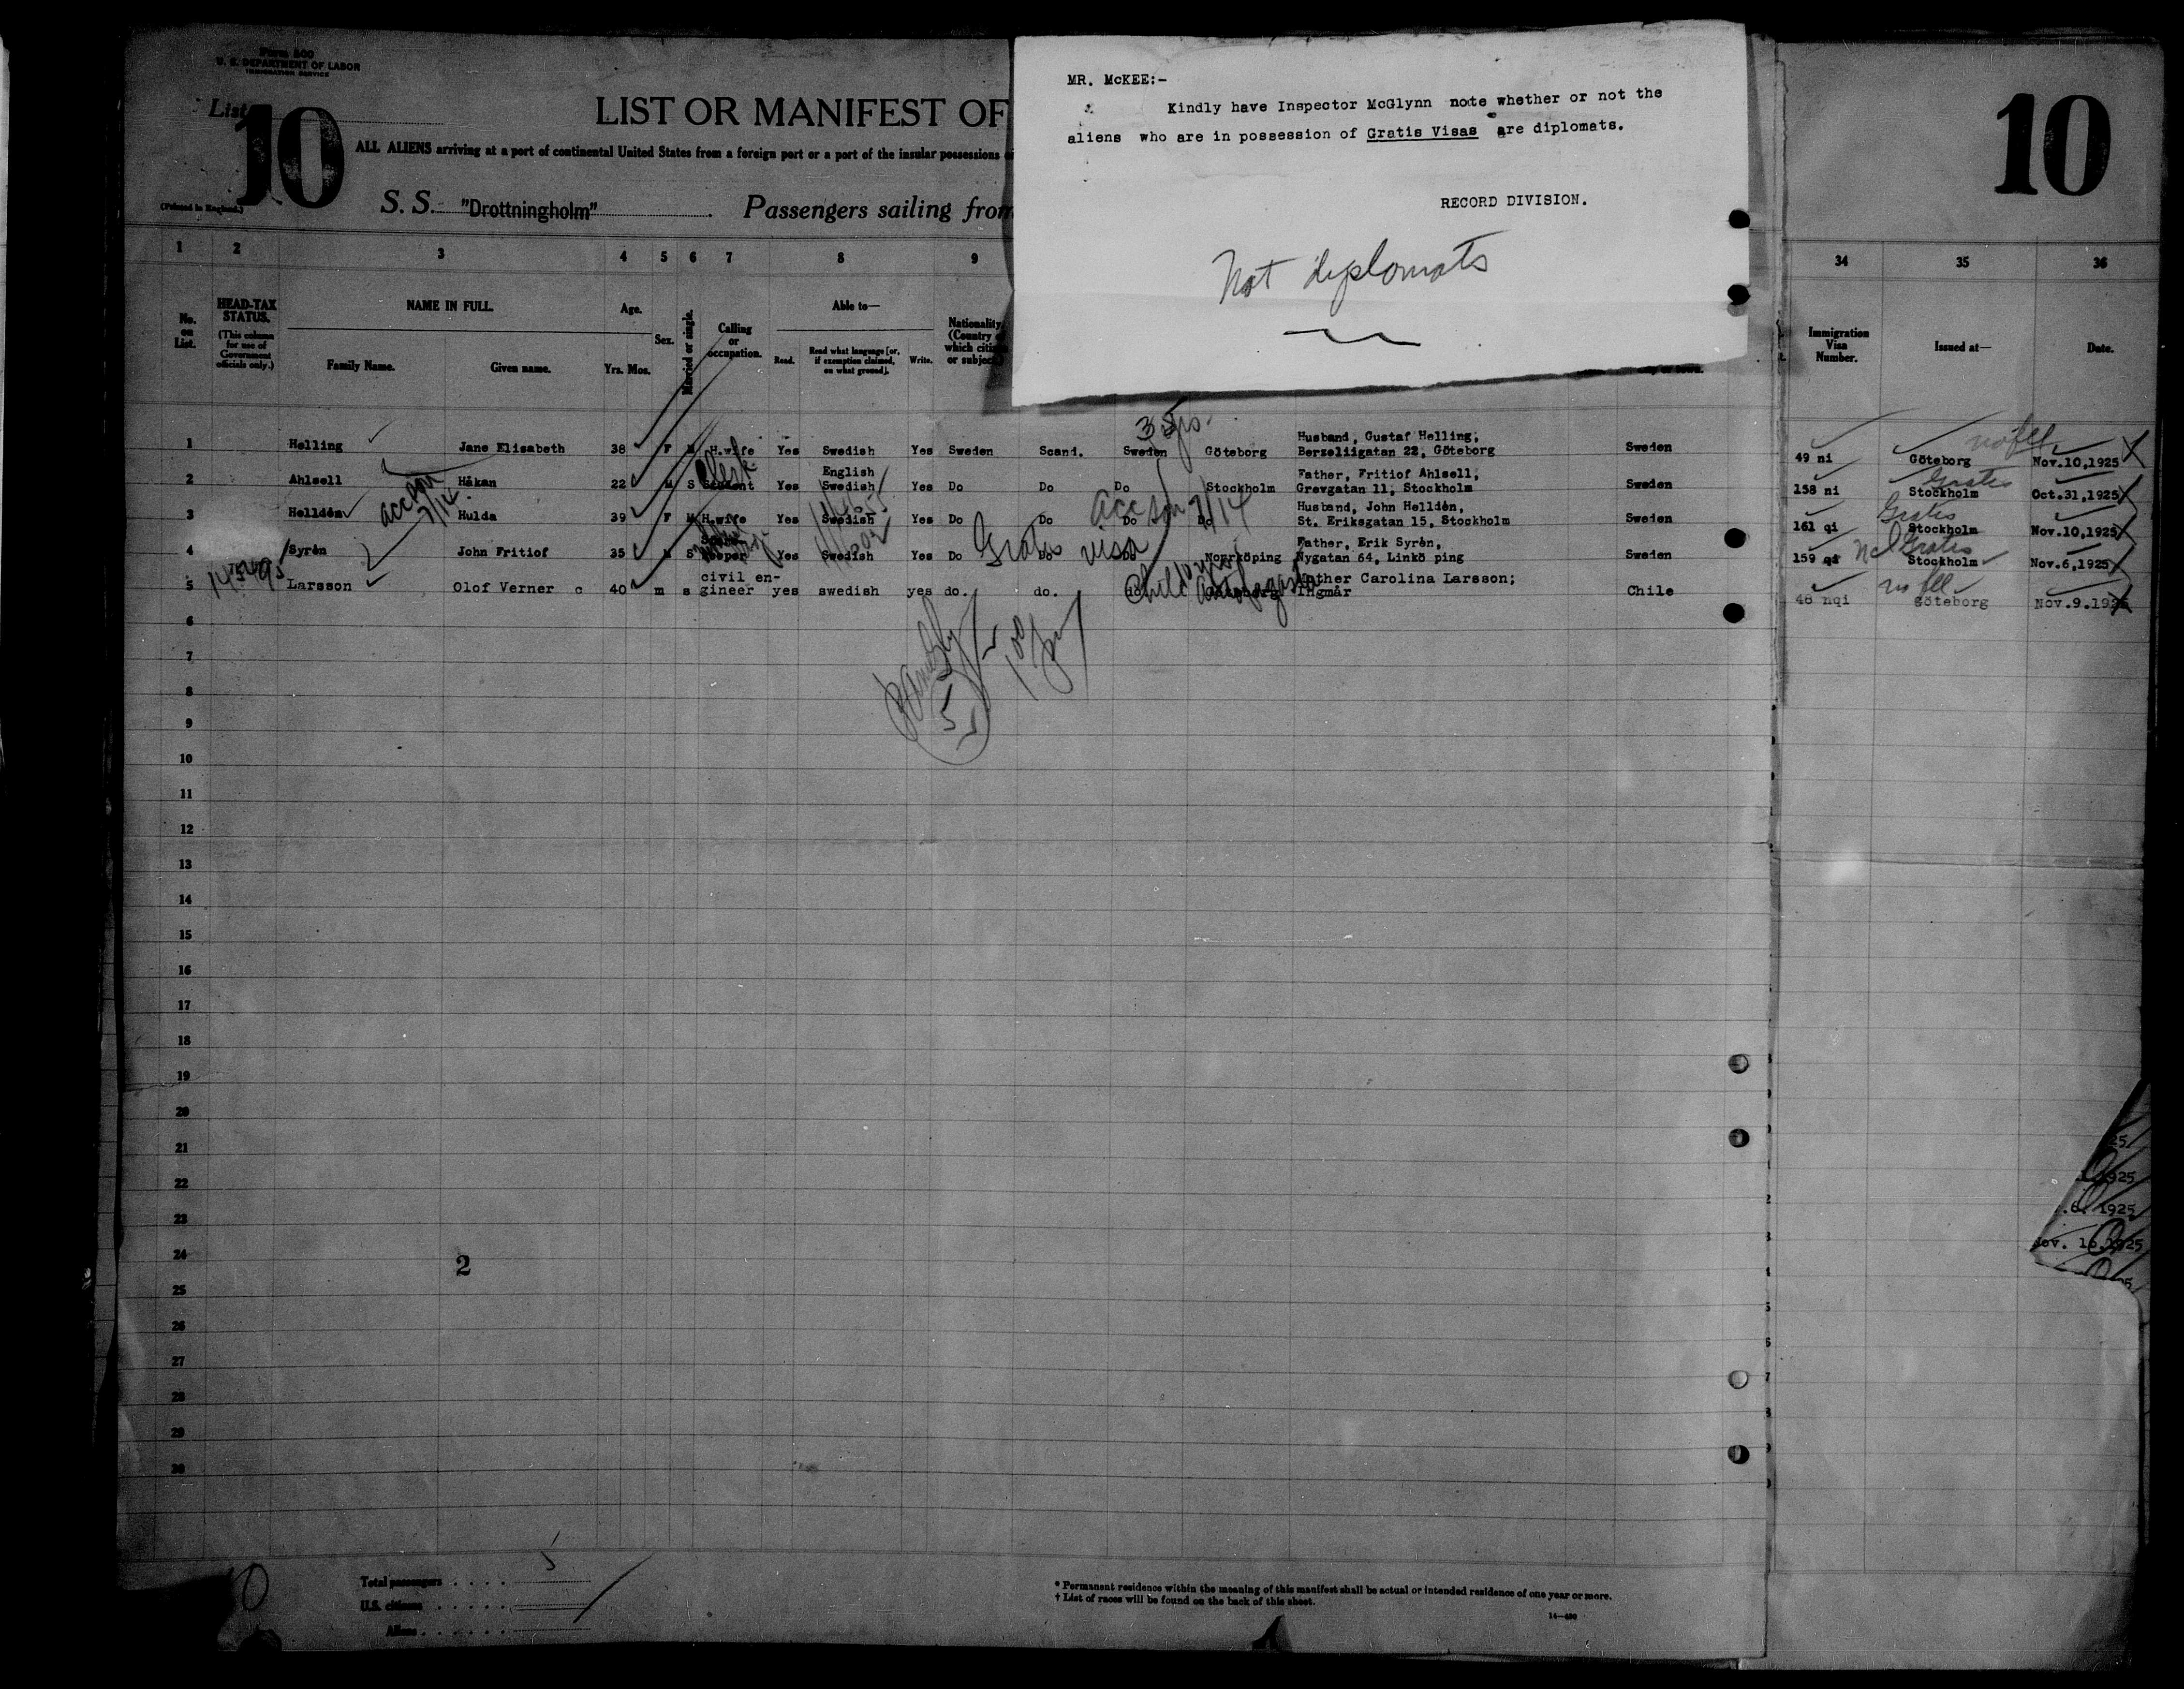 Form 500
U. S. DEPARTMENT OF LABOR
IMMIGRATION SERVICE
List 10
(Printed in England.)
LIST OR MANIFEST OF
ALL ALIENS arriving at a port of continental United States from a foreign port or a port of the insular possessions
S. S. "Drottningholm" Passengers sailing from
MR. McKEE:-
Kindly have Inspector McGlynn note whether or not the
aliens who are in possession of Gratis Visas are diplomats.
RECORD DIVISION.
Not diplomats
10
1 2 3 4 5 6 7 8 9 34 35 36
No. on List.
HEAD-TAX STATUS.
(This column for use of Government officials only.)
NAME IN FULL.
Family Name. Given name.
Age.
Yrs. Mos.
Sex.
Married or single.
Calling or occupation.
Able to—
Read. Read what language [or, if exemption claimed, on what ground]. Write.
Nationality. (Country of which citizen or subject.)
Immigration Visa Number.
Issued at—
Date.
1 Helling Jane Elisabeth 38 F M H.wife Yes Swedish Yes Sweden Scand. Sweden Göteborg Husband, Gustaf Helling, Berzeliigatan 22, Göteborg Sweden 49 ni Göteborg Nov.10,1925
2 Ahlsell Håkan 22 M S Student Clerk Yes English Swedish Yes Do Do Do Stockholm Father, Fritiof Ahlsell, Grevgatan 11, Stockholm Sweden 158 ni Gratis Stockholm Oct.31,1925
3 Helldén Hulda 39 F M H.wife Yes Swedish Yes Do Do Do Do Husband, John Helldén, St. Eriksgatan 15, Stockholm Sweden 161 qi Gratis Stockholm Nov.10,1925
4 Syrén John Fritiof 35 M S keeper Yes Swedish Yes Do Do Do Norrköping Father, Erik Syrén, Nygatan 64, Linkö ping Sweden 159 qi Gratis Stockholm Nov.6,1925
5 Larsson Olof Verner c 40 m s civil engineer yes swedish yes do. do. do Mother Carolina Larsson; Ingmår Chile 48 nqi göteborg Nov.9.1925
Gratis visa
Chile
5
6
7
8
9
10
11
12
13
14
15
16
17
18
19
20
21
22
23
24
25
26
27
28
29
30
2
1925
1925
Nov. 16.1925
Total passengers 5
U.S. citizens
Aliens
* Permanent residence within the meaning of this manifest shall be actual or intended residence of one year or more.
† List of races will be found on the back of this sheet.
14—490